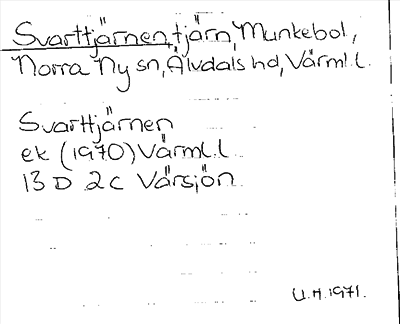 Svarttjärnen, tjärn, Munkebol,
Norra Ny sn, Älvdals hd, Värml.l.
Svarttjärnen
ek (1970) Värml.l
13 D 2c Värsjön
U.H. 1971.